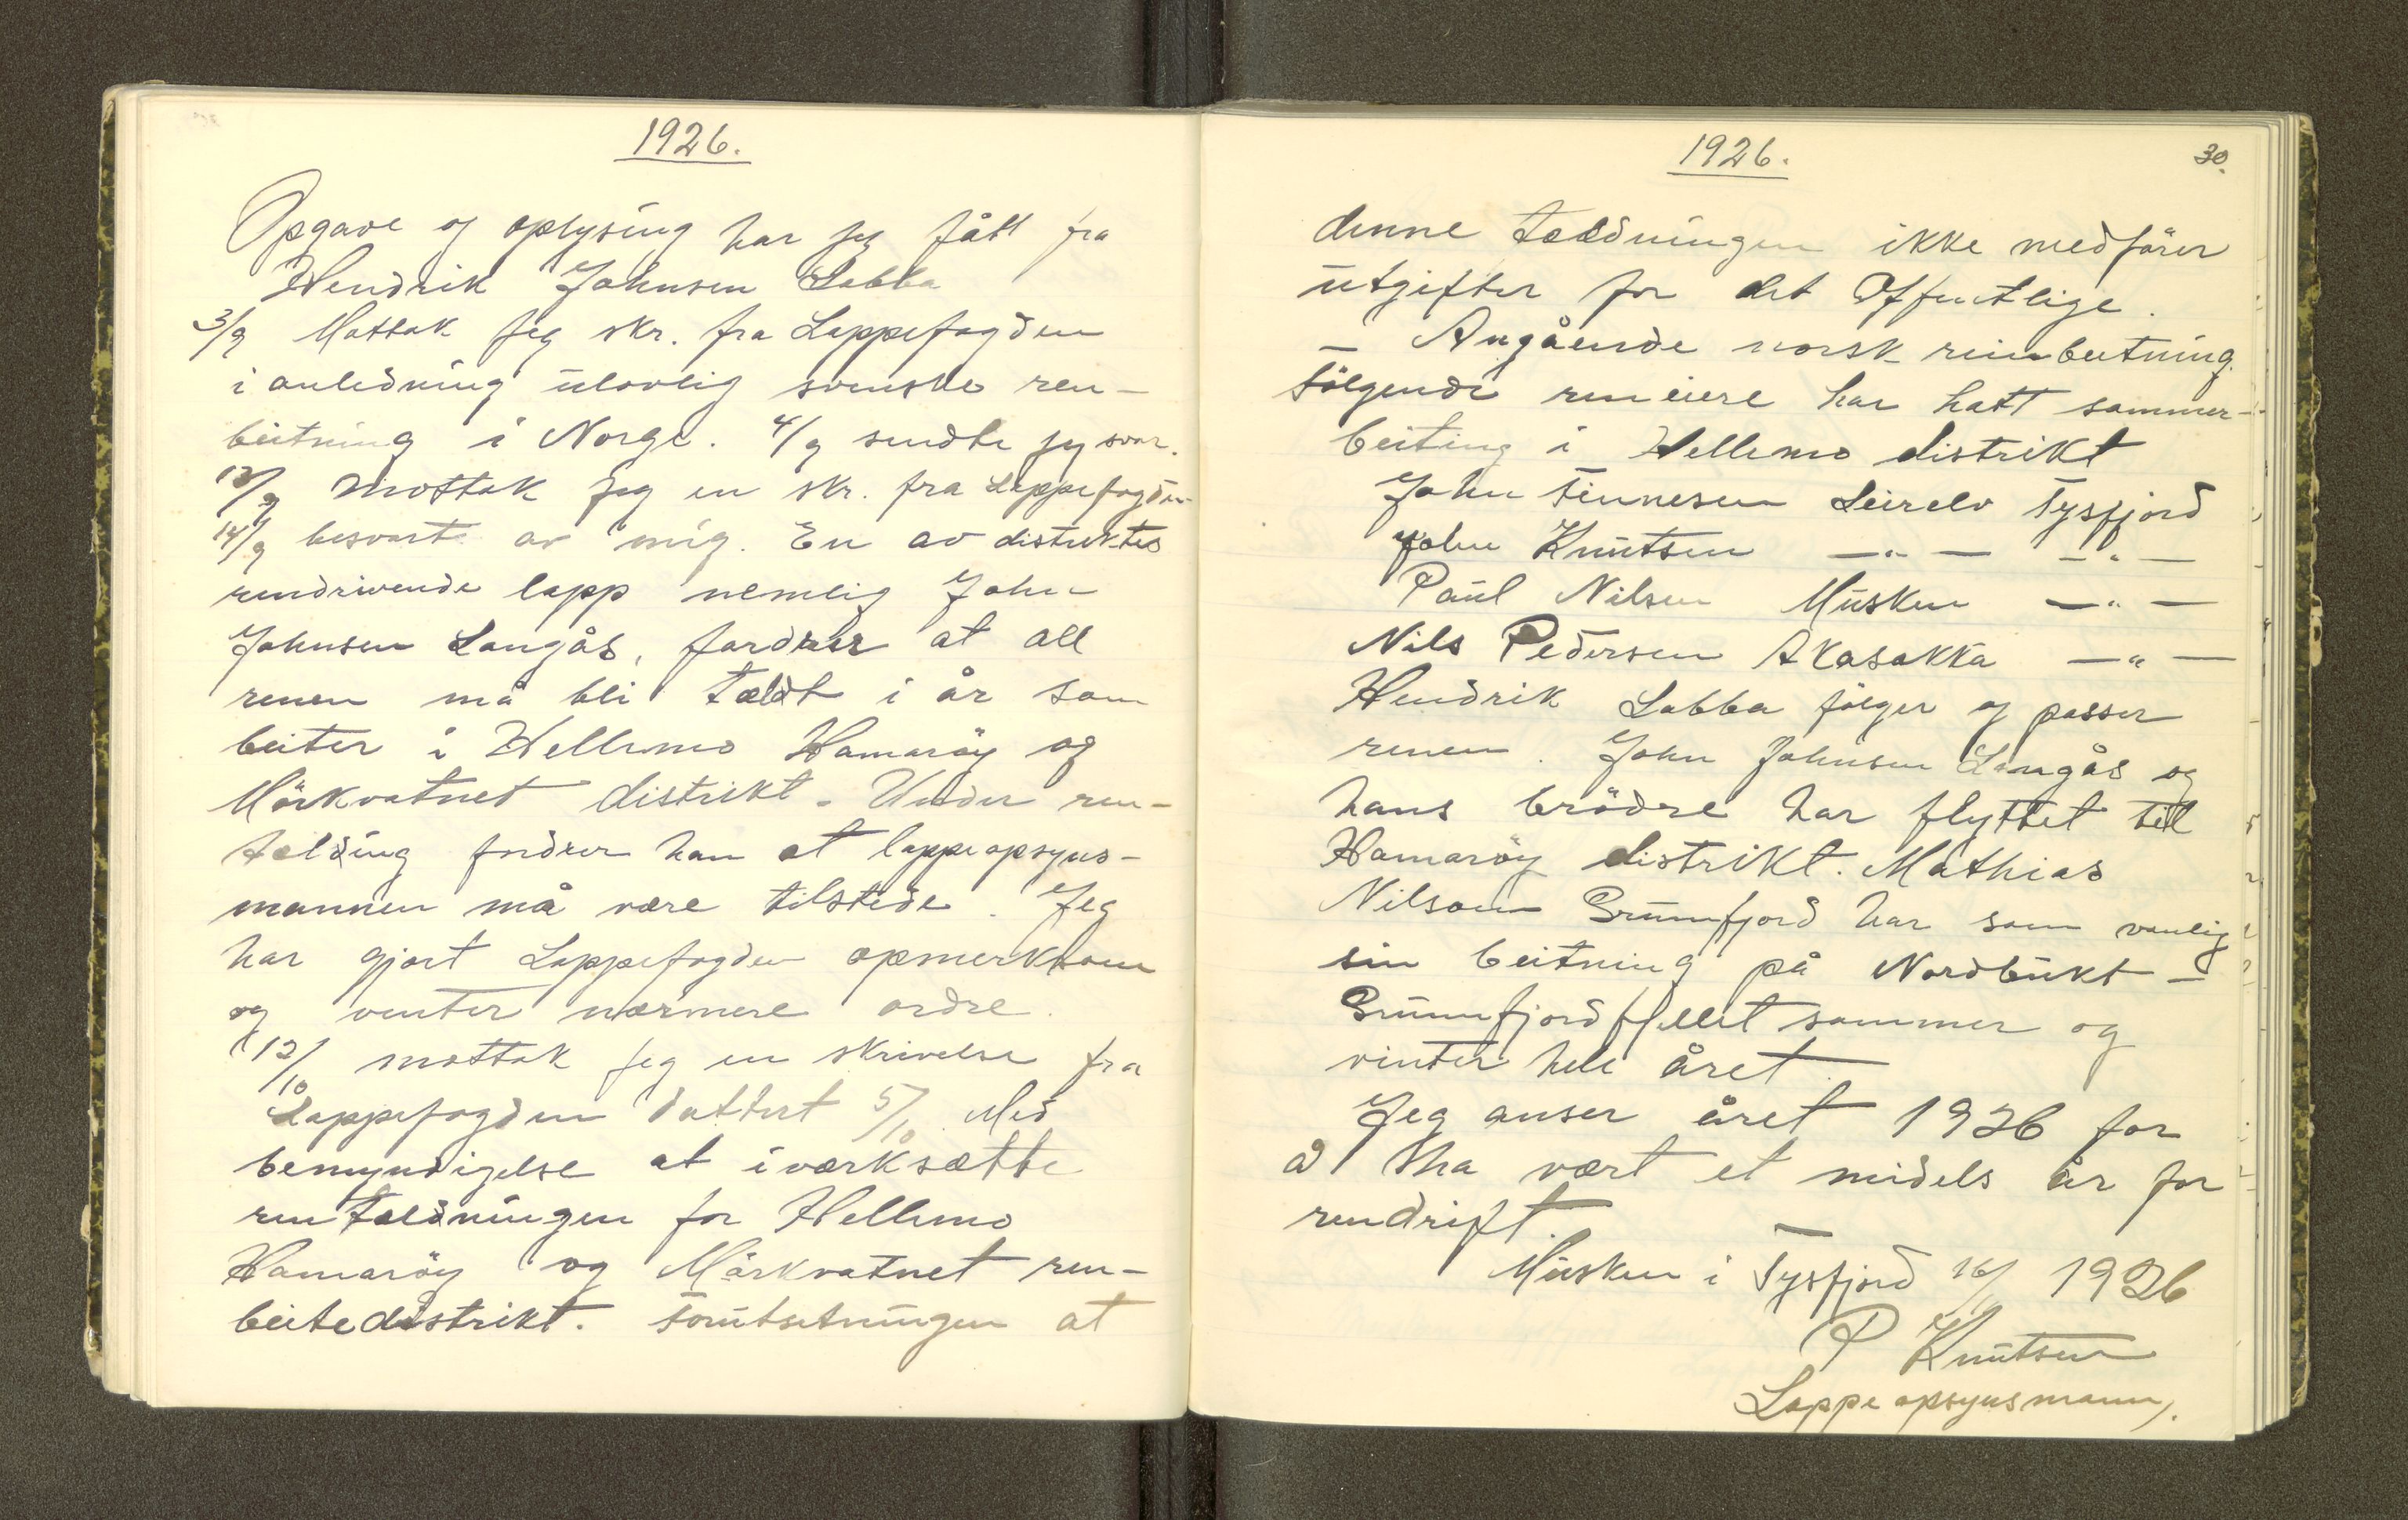 1926.
Opgave og oplysing har jeg fått fra
Hendrik Johnsen Labba
3/9 Mottok jeg skr. fra Lappefogden
i anledning ulovlig svenske ren-
beitning i Norge. 4/9 sendte jeg svar.
13/9 mottok jeg en skr. fra Lappefogden
14/9 besvart av mig. En av distriktes
rendrivende lapp nemlig John
Johnsen Langås, fordrer at all
renen må bli tældt i år som
beiter i Hellemo Hamaröy og
Mörkvatnet distrikt. Under ren-
tælding fordrer han at lappeopsyns-
mannen må være tilstede. Jeg
har gjort Lappefogden opmerksom
og venter nærmere ordre.
12/10 mottok jeg en skrivelse fra
Lappefogden dattert 5/10. Med
bemyndigelse at iværksætte
rentældningen for Hellemo
Hamaröy og Mörkvatnet ren-
beitedistrikt. Forutsetningen at
1926.
30.
denne tældningen ikke medförer
utgifter for det Offentlige.
- Angående norsk reinbeitning.
Fölgende reneiere har hatt sommer-
beiting i Hellemo distrikt
John Finnesen Leirelv Tysfjord
John Knutsen —"— —"—
Paul Nilsen Musken —"—
Nils Pedersen Akasakka —"—
Hendrik Labba fölger og passer
renen. John Johnsen Langås og
hans brödre har flyttet til
Hamaröy distrikt. Mathias
Nilsen Grunnfjord har som vanlig
sin beitning på Nordbukt-
Grunnfjordfjellet sommer og
vinter hele året.
Jeg anser året 1926 for
å ha vært et midels år for
rendrift.
Musken i Tysfjord 1926
P Knutsen
Lappeopsynsmann.